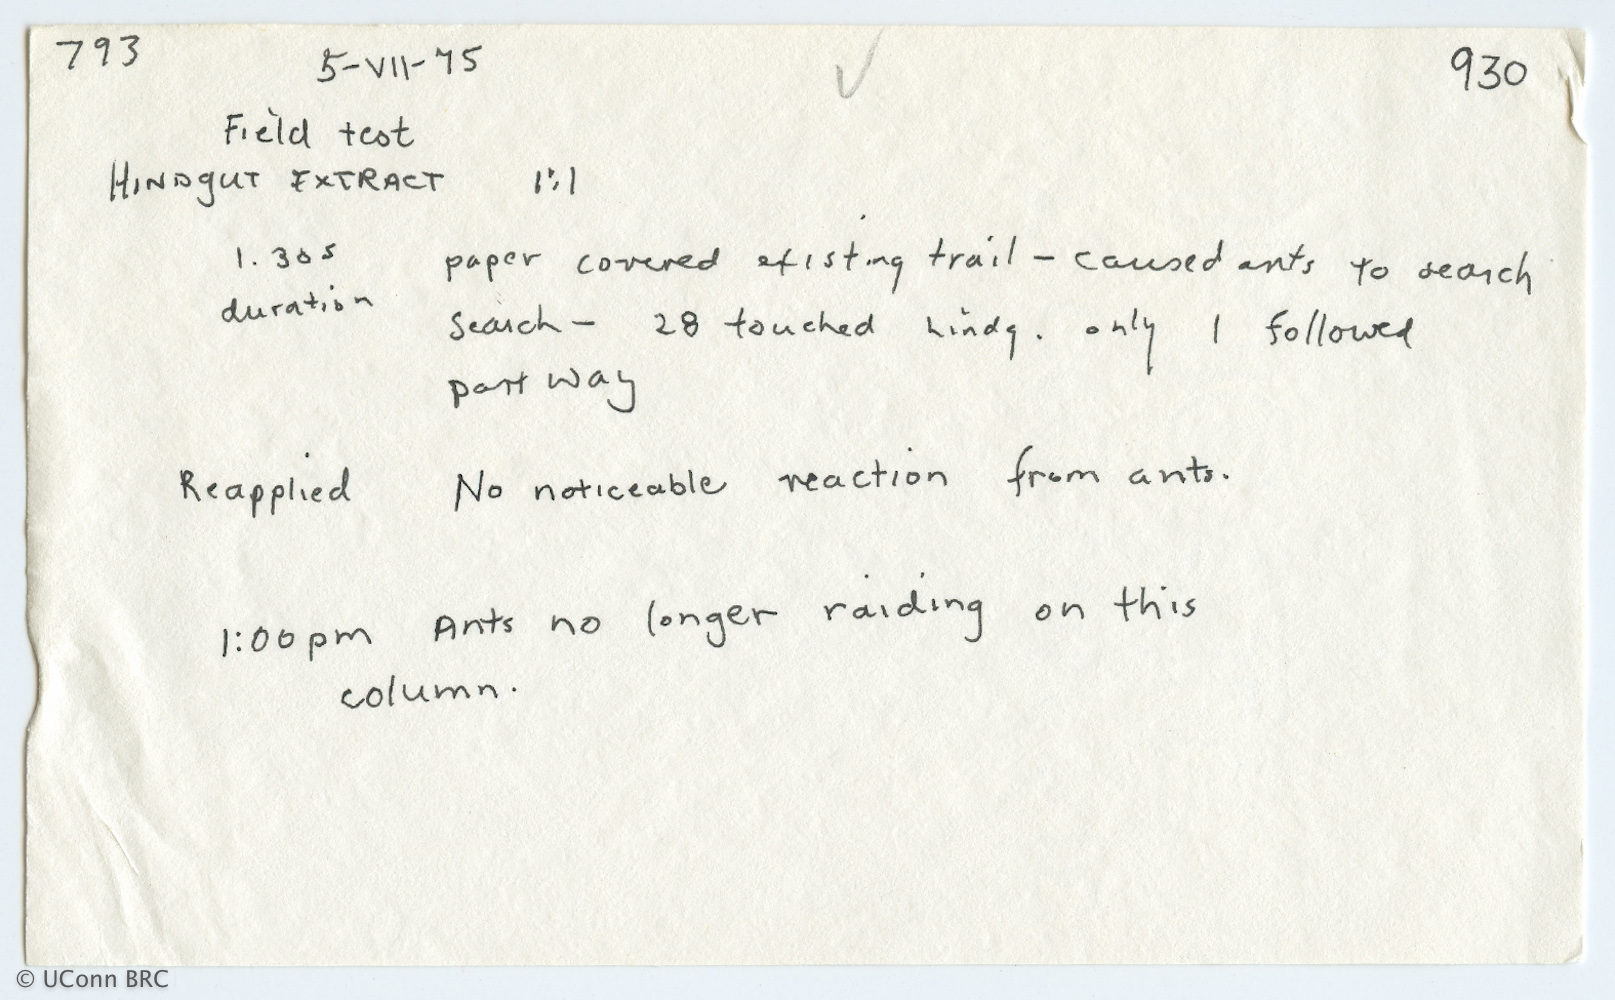 793 5-VII-75 930
Field test
HINDgUT EXTRACT 1:1
1. 30s paper covered existing trail - caused ants to search
duration search - 28 touched hindg. only 1 followed
part way
Reapplied No noticeable reaction from ants.
1:00pm Ants no longer raiding on this
column.
© UConn BRC